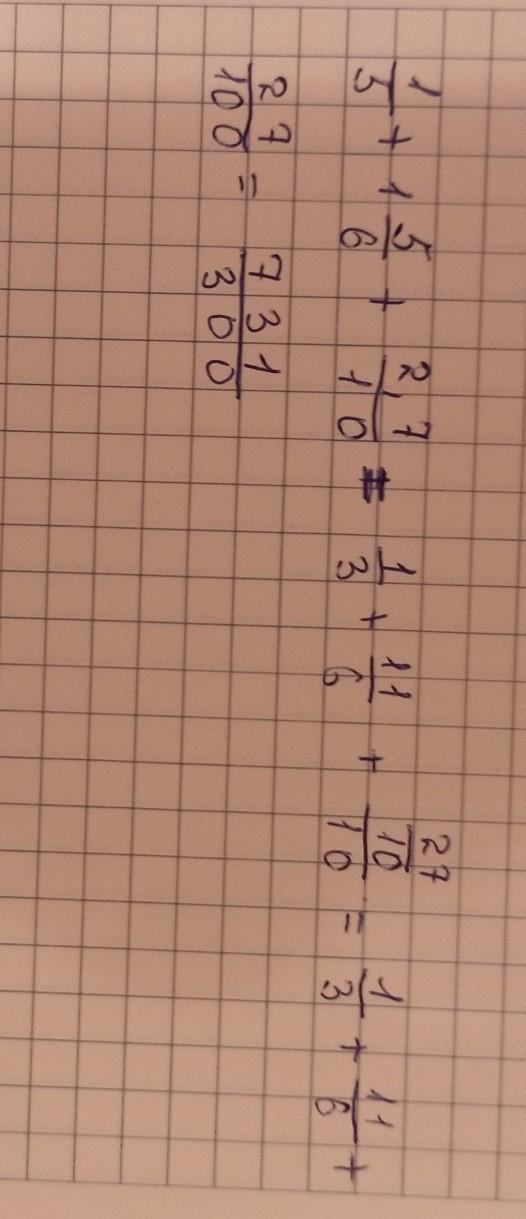 1/5 + 1 5/6 + 2,7/10 = 1/3 + 11/6 + 27/10/10 = 1/3 + 11/6 +
27/100 = 731/300